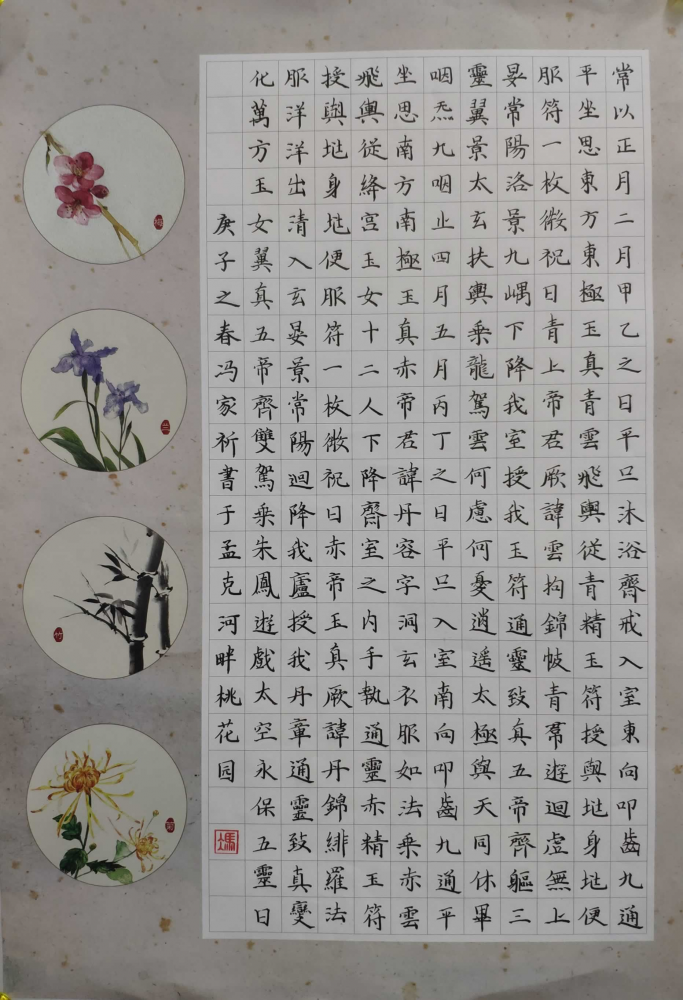 常以正月二月甲乙之日平旦沐浴齊戒入室東向叩齒九通
平坐思東方東極玉真青雲飛輿從青精玉符授與地身地便
服符一枚微祝曰青上帝君厥諱雲拘錦帔青羣遊迴虛無上
晏常陽洛景九嵎下降我室授我玉符通靈致真五帝齊軀三
靈翼景太玄扶輿乗龍駕雲何慮何憂逍遥太極與天同休畢
咽炁九咽止四月五月丙丁之日平旦入室南向叩齒九通平
坐思南方南極玉真赤帝君諱丹容字洞玄衣服如法乗赤雲
飛輿從絳宫玉女十二人下降齊室之内手執通靈赤精玉符
授與地身地便服符一枚微祝曰赤帝玉真厥諱丹錦緋羅法
服洋洋出清入玄晏景常陽迴降我廬授我丹章通靈致真變
化萬方玉女翼真五帝齊雙駕乗朱鳳遊戲太空永保五靈日
庚子之春冯家祈書于孟克河畔桃花园
馮
梅
兰
竹
菊